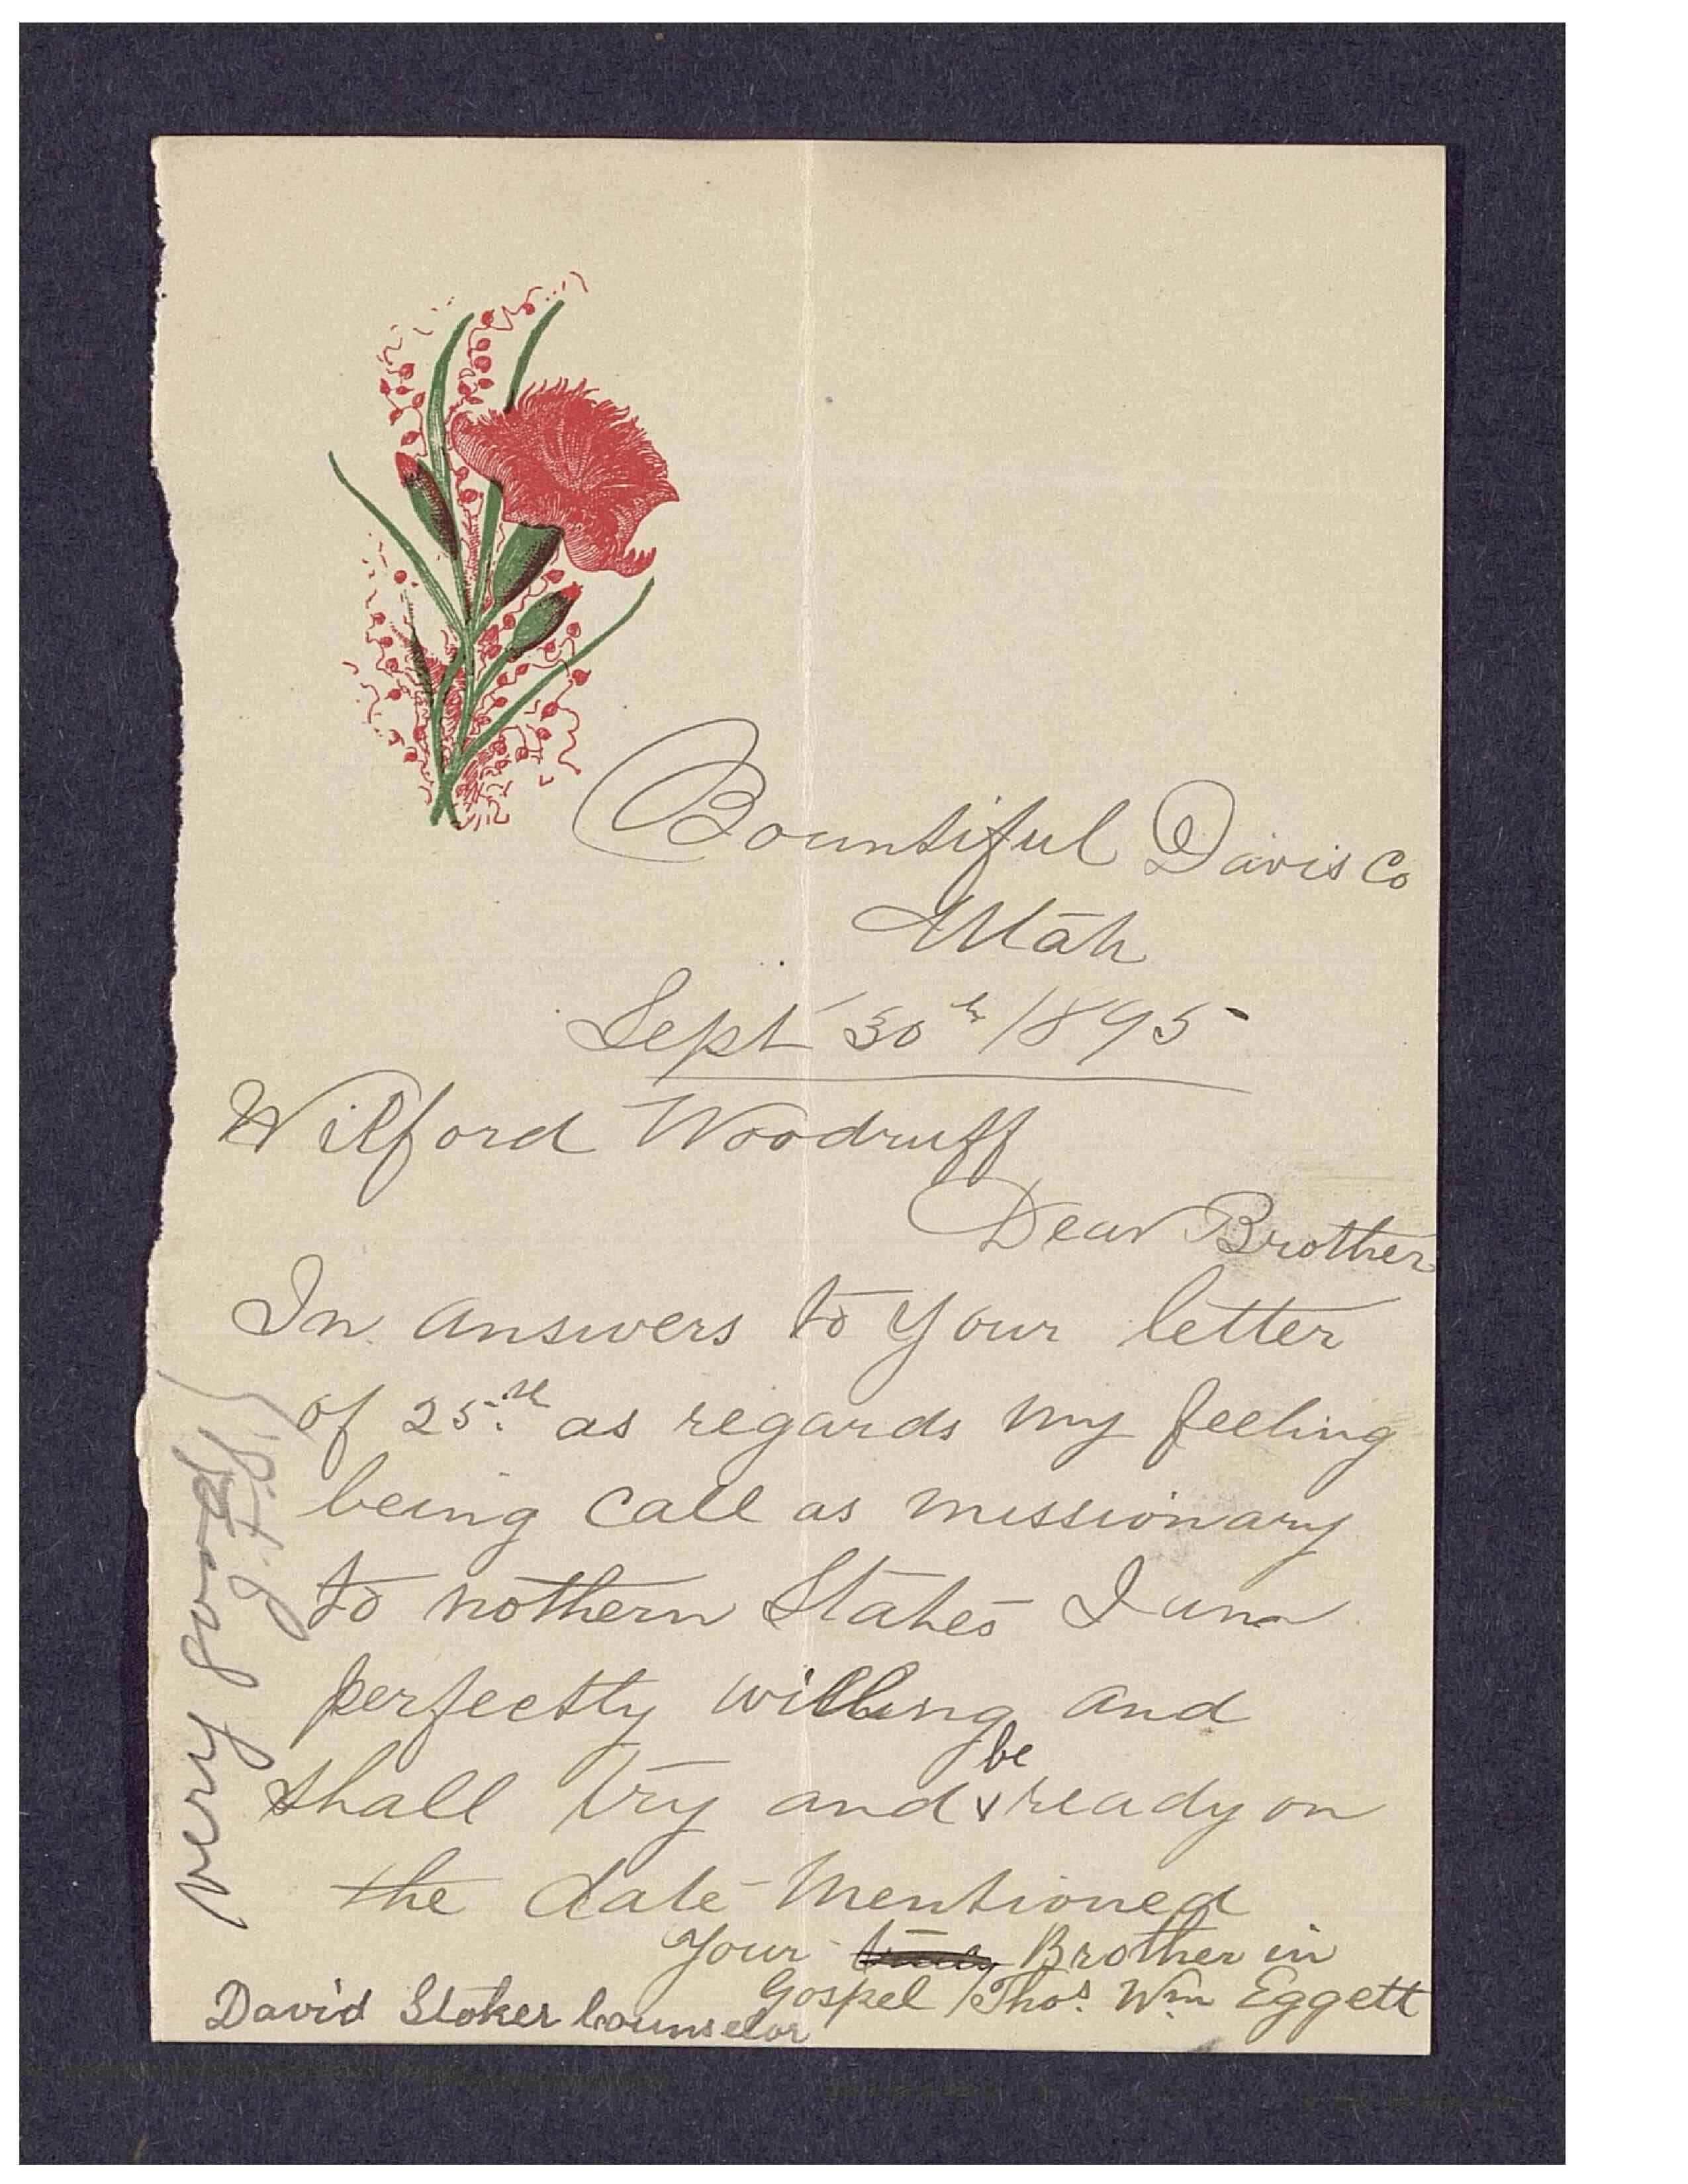 Bountiful Davis Co
Utah
Sept 30th 1895
Wilford Woodruff
Dear Brother
In answers to your letter
of 25th as regards my feeling
being call as missionary
to nothern States I am
perfectly willing and
shall try and be ready on
the date mentioned
Your truly Brother in
Gospel Thos. Wm Eggett
David Stoker Counselor
very good
J. F. S.